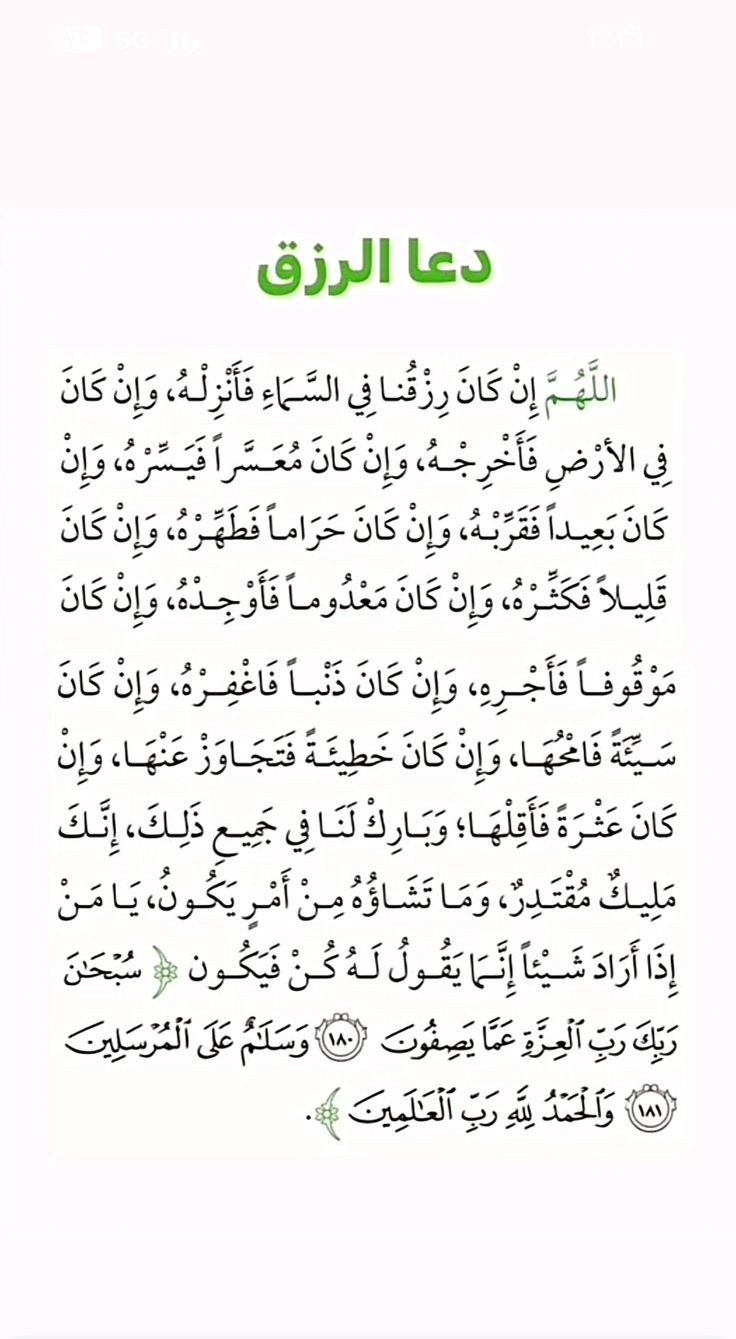 5G
دعا الرزق
اللَّهُمَّ إِنْ كَانَ رِزْقُنا فِي السَّمَاءِ فَأَنْزِلْهُ، وَإِنْ كَانَ
فِي الأرْضِ فَأَخْرِجْهُ، وَإِنْ كَانَ مُعَسَّراً فَيَسِّرْهُ، وَإِنْ
كَانَ بَعِيداً فَقَرِّبْهُ، وَإِنْ كَانَ حَرَاماً فَطَهِّرْهُ، وَإِنْ كَانَ
قَلِيلاً فَكَثِّرْهُ، وَإِنْ كَانَ مَعْدُوماً فَأَوْجِدْهُ، وَإِنْ كَانَ
مَوْقُوفاً فَأَجْرِهِ، وَإِنْ كَانَ ذَنْباً فَاغْفِرْهُ، وَإِنْ كَانَ
سَيِّئَةً فَامْحُهَا، وَإِنْ كَانَ خَطِيئَةً فَتَجَاوَزْ عَنْهَا، وَإِنْ
كَانَ عَثْرَةً فَأَقِلْهَا؛ وَبَارِكْ لَنَا فِي جَمِيعِ ذَلِكَ، إِنَّكَ
مَلِيكٌ مُقْتَدِرٌ، وَمَا تَشَاؤُهُ مِنْ أَمْرٍ يَكُونُ، يَا مَنْ
إِذَا أَرَادَ شَيْئاً إِنَّمَا يَقُولُ لَهُ كُنْ فَيَكُون ﴿ سُبْحَٰنَ
رَبِّكَ رَبِّ ٱلْعِزَّةِ عَمَّا يَصِفُونَ ١٨٠ وَسَلَٰمٌ عَلَى ٱلْمُرْسَلِينَ
١٨١ وَٱلْحَمْدُ لِلَّهِ رَبِّ ٱلْعَٰلَمِينَ ﴾.